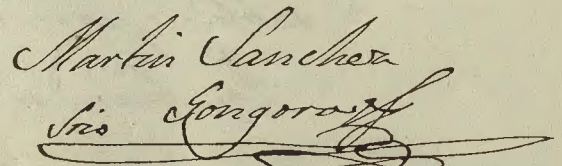 Martin Sanchez
Srio Gongora